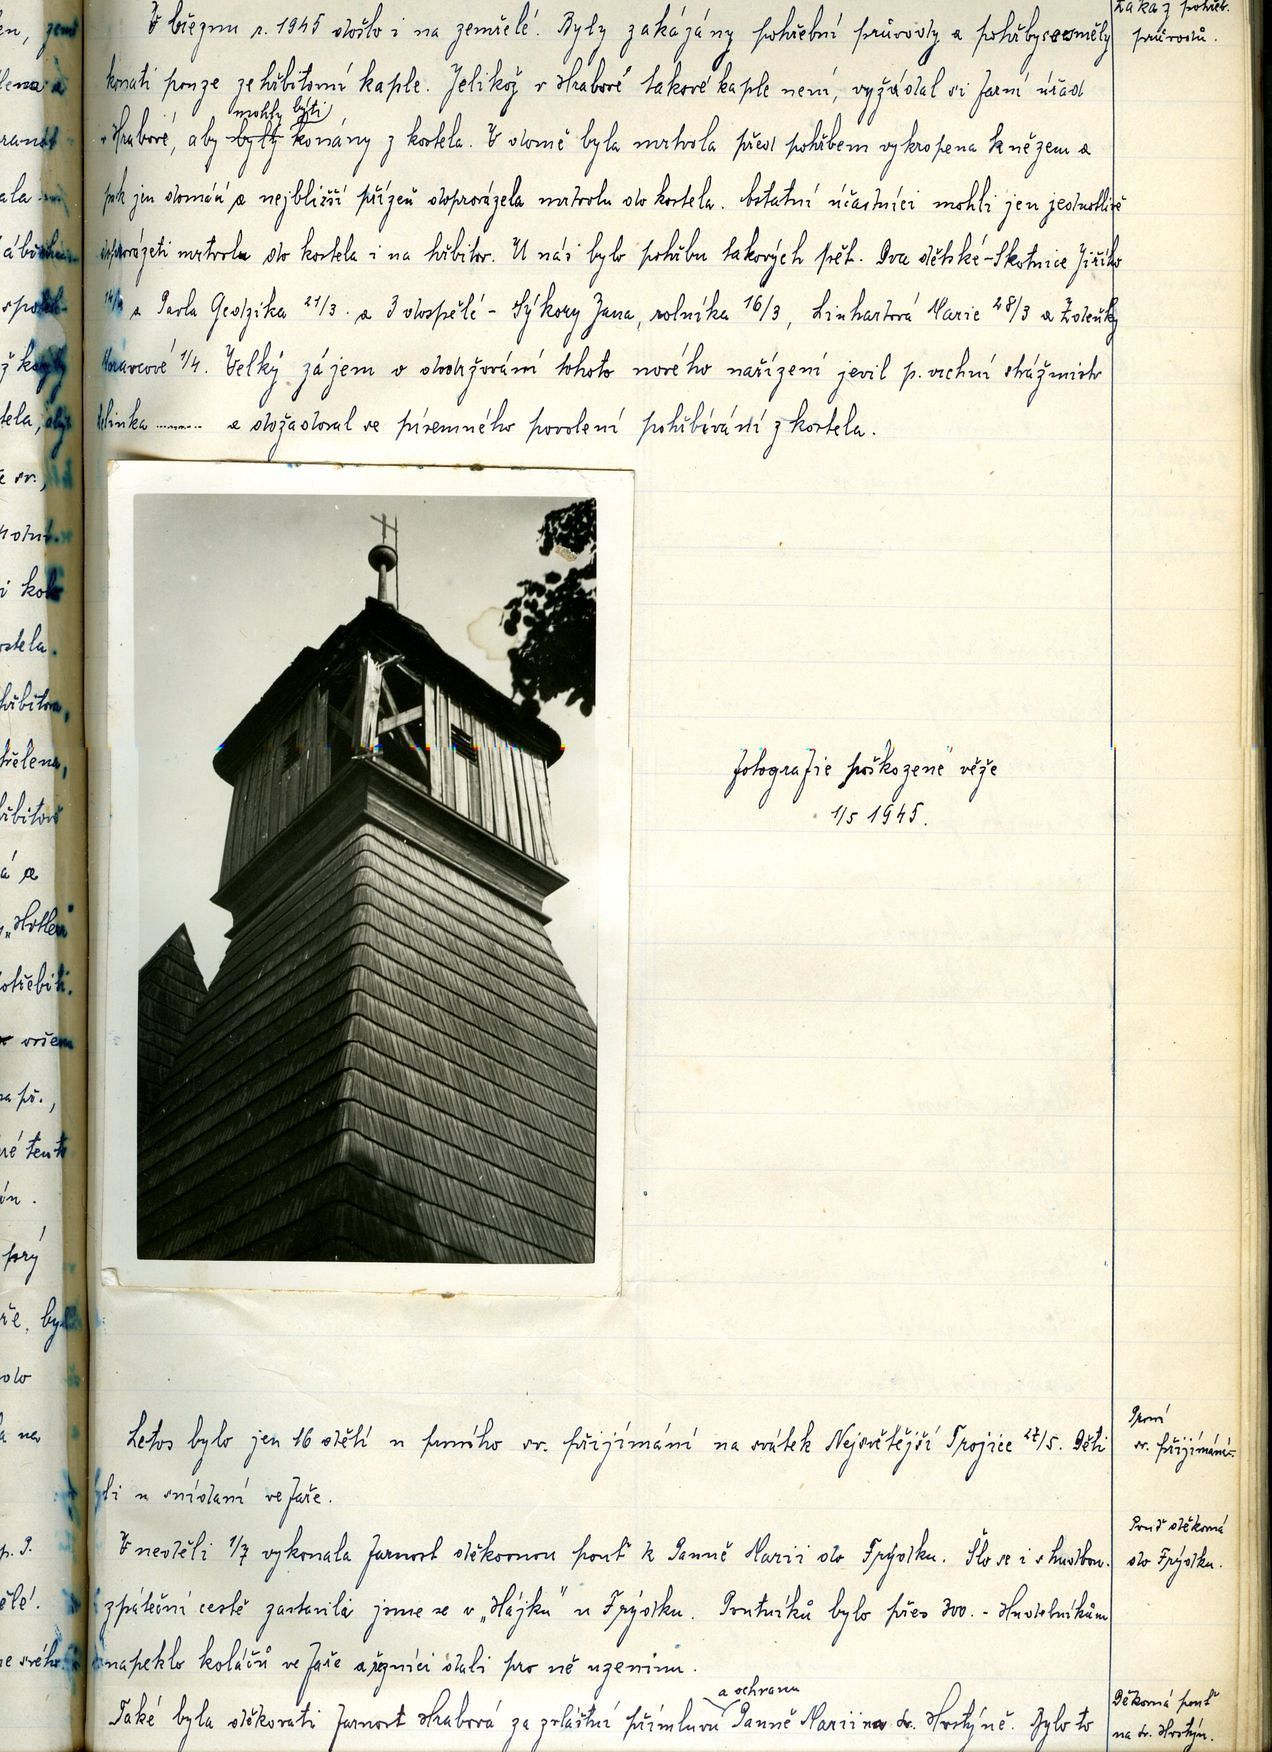 Zákaz pohřeb.
průvodů.
V březnu r. 1945 došlo i na zemřelé. Byly zakázány pohřební průvody a pohřby se směly
konati pouze ze hřbitovní kaple. Jelikož v Hrabové takové kaple není, vyžádal si farní úřad
v Hrabové, aby byly mohly býti konány z kostela. V domě byla mrtvola před pohřbem vykropena knězem a
pak jen domácí a nejbližší přízeň doprovázela mrtvolu do kostela. Ostatní účastníci mohli jen jednotlivě
doprovázeti mrtvolu do kostela i na hřbitov. U nás bylo pohřbu takových pět. Dva dětské - Skotnice Jiřího
a Pavla Geodzika 21/3. a 3 dospělé - Sýkory Jana, rolníka 16/3, Linhartová Marie 28/3 a Zdeňky
Moravcové 1/4. Velký zájem o dodržování tohoto nového nařízení jevil p. vrchní strážmistr
a dožadoval se písemného povolení pohřbívání z kostela.
fotografie poškozené věže
1/5 1945.
Letos bylo jen 16 dětí u prvního sv. přijímání na svátek Nejsvětější Trojice 27/5. Děti
byli u snídaní ve faře.
První
sv. přijímání.
V neděli 1/7 vykonala farnost děkovnou pouť k Panně Marii do Frýdku. Šlo se i s hudbou.
zpáteční cestě zastavila jsme se v „Hájku" u Frýdku. Poutníků bylo přes 300. - Hudebníkům
napeklo koláčů ve faře a řezníci dali pro ně uzeninu.
Pouť děkovná
do Frýdku.
Také byla děkovati farnost Hrabová za zvláštní přímluvu a ochranu Panně Marii na sv. Hostýně. Bylo to
Děkovná pouť
na sv. Hostýn.